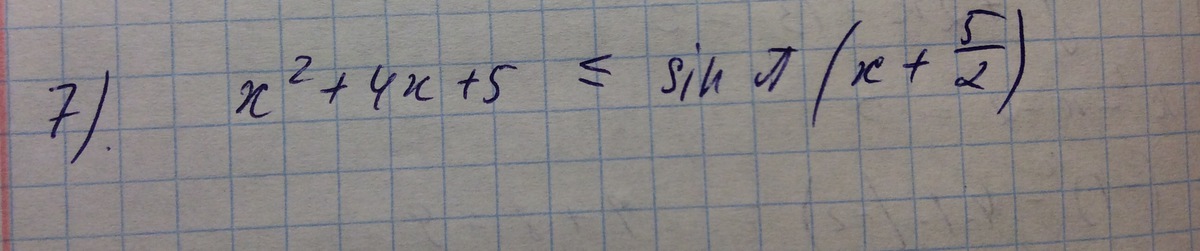 7). x² + 4x + 5 ≤ sin π (x + 5/2)